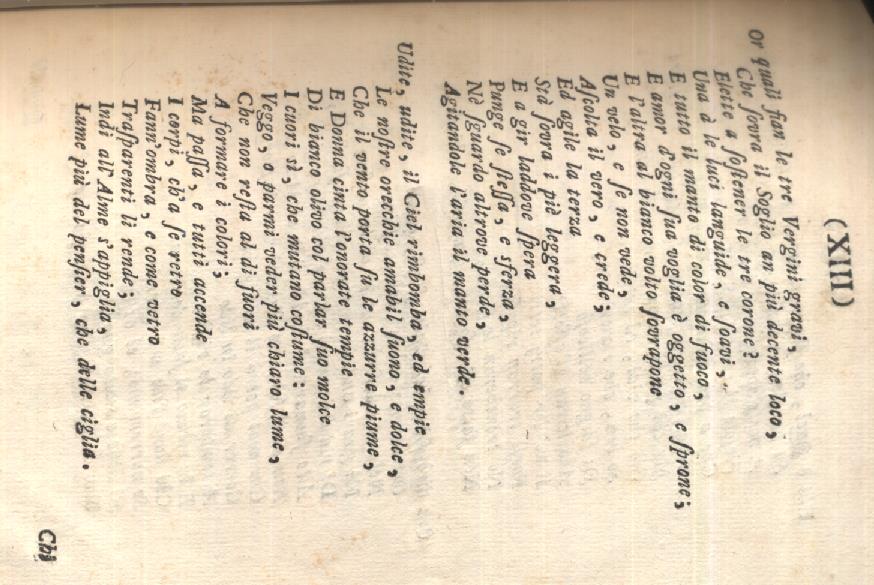 (XIII)
Or quali ſian le tre Vergini gravi,
Che ſovra il Soglio an più decente loco,
Elette a ſoſtener le tre corone?
Una à le luci languide, e ſoavi,
E tutto il manto di color di fuoco,
E amor d'ogni ſua voglia è oggetto, e ſprone;
E l'altra al bianco volto ſovrapone
Un velo, e ſe non vede,
Aſcolta il vero, e crede;
Ed agile la terza
Stà ſovra i piè leggera,
E a gir laddove ſpera
Punge ſe ſteſſa, e sferza,
Nè ſguardo altrove perde,
Agitandole l'aria il manto verde.
Udite, udite, il Ciel rimbomba, ed empie
Le noſtre orecchie amabil ſuono, e dolce,
Che il vento porta ſu le azzurre piume,
E Donna cinta l'onorate tempie
Di bianco olivo col parlar ſuo molce
I cuori sì, che mutano coſtume:
Veggo, o parmi veder più chiaro lume,
Che non reſta al di fuori
A formare i colori;
Ma paſſa, e tutti accende
I corpi, ch'a ſe retro
Fann'ombra, e come vetro
Traſparenti li rende;
Indi all'Alme s'appiglia,
Lume più del penſier, che delle ciglia.
Chi